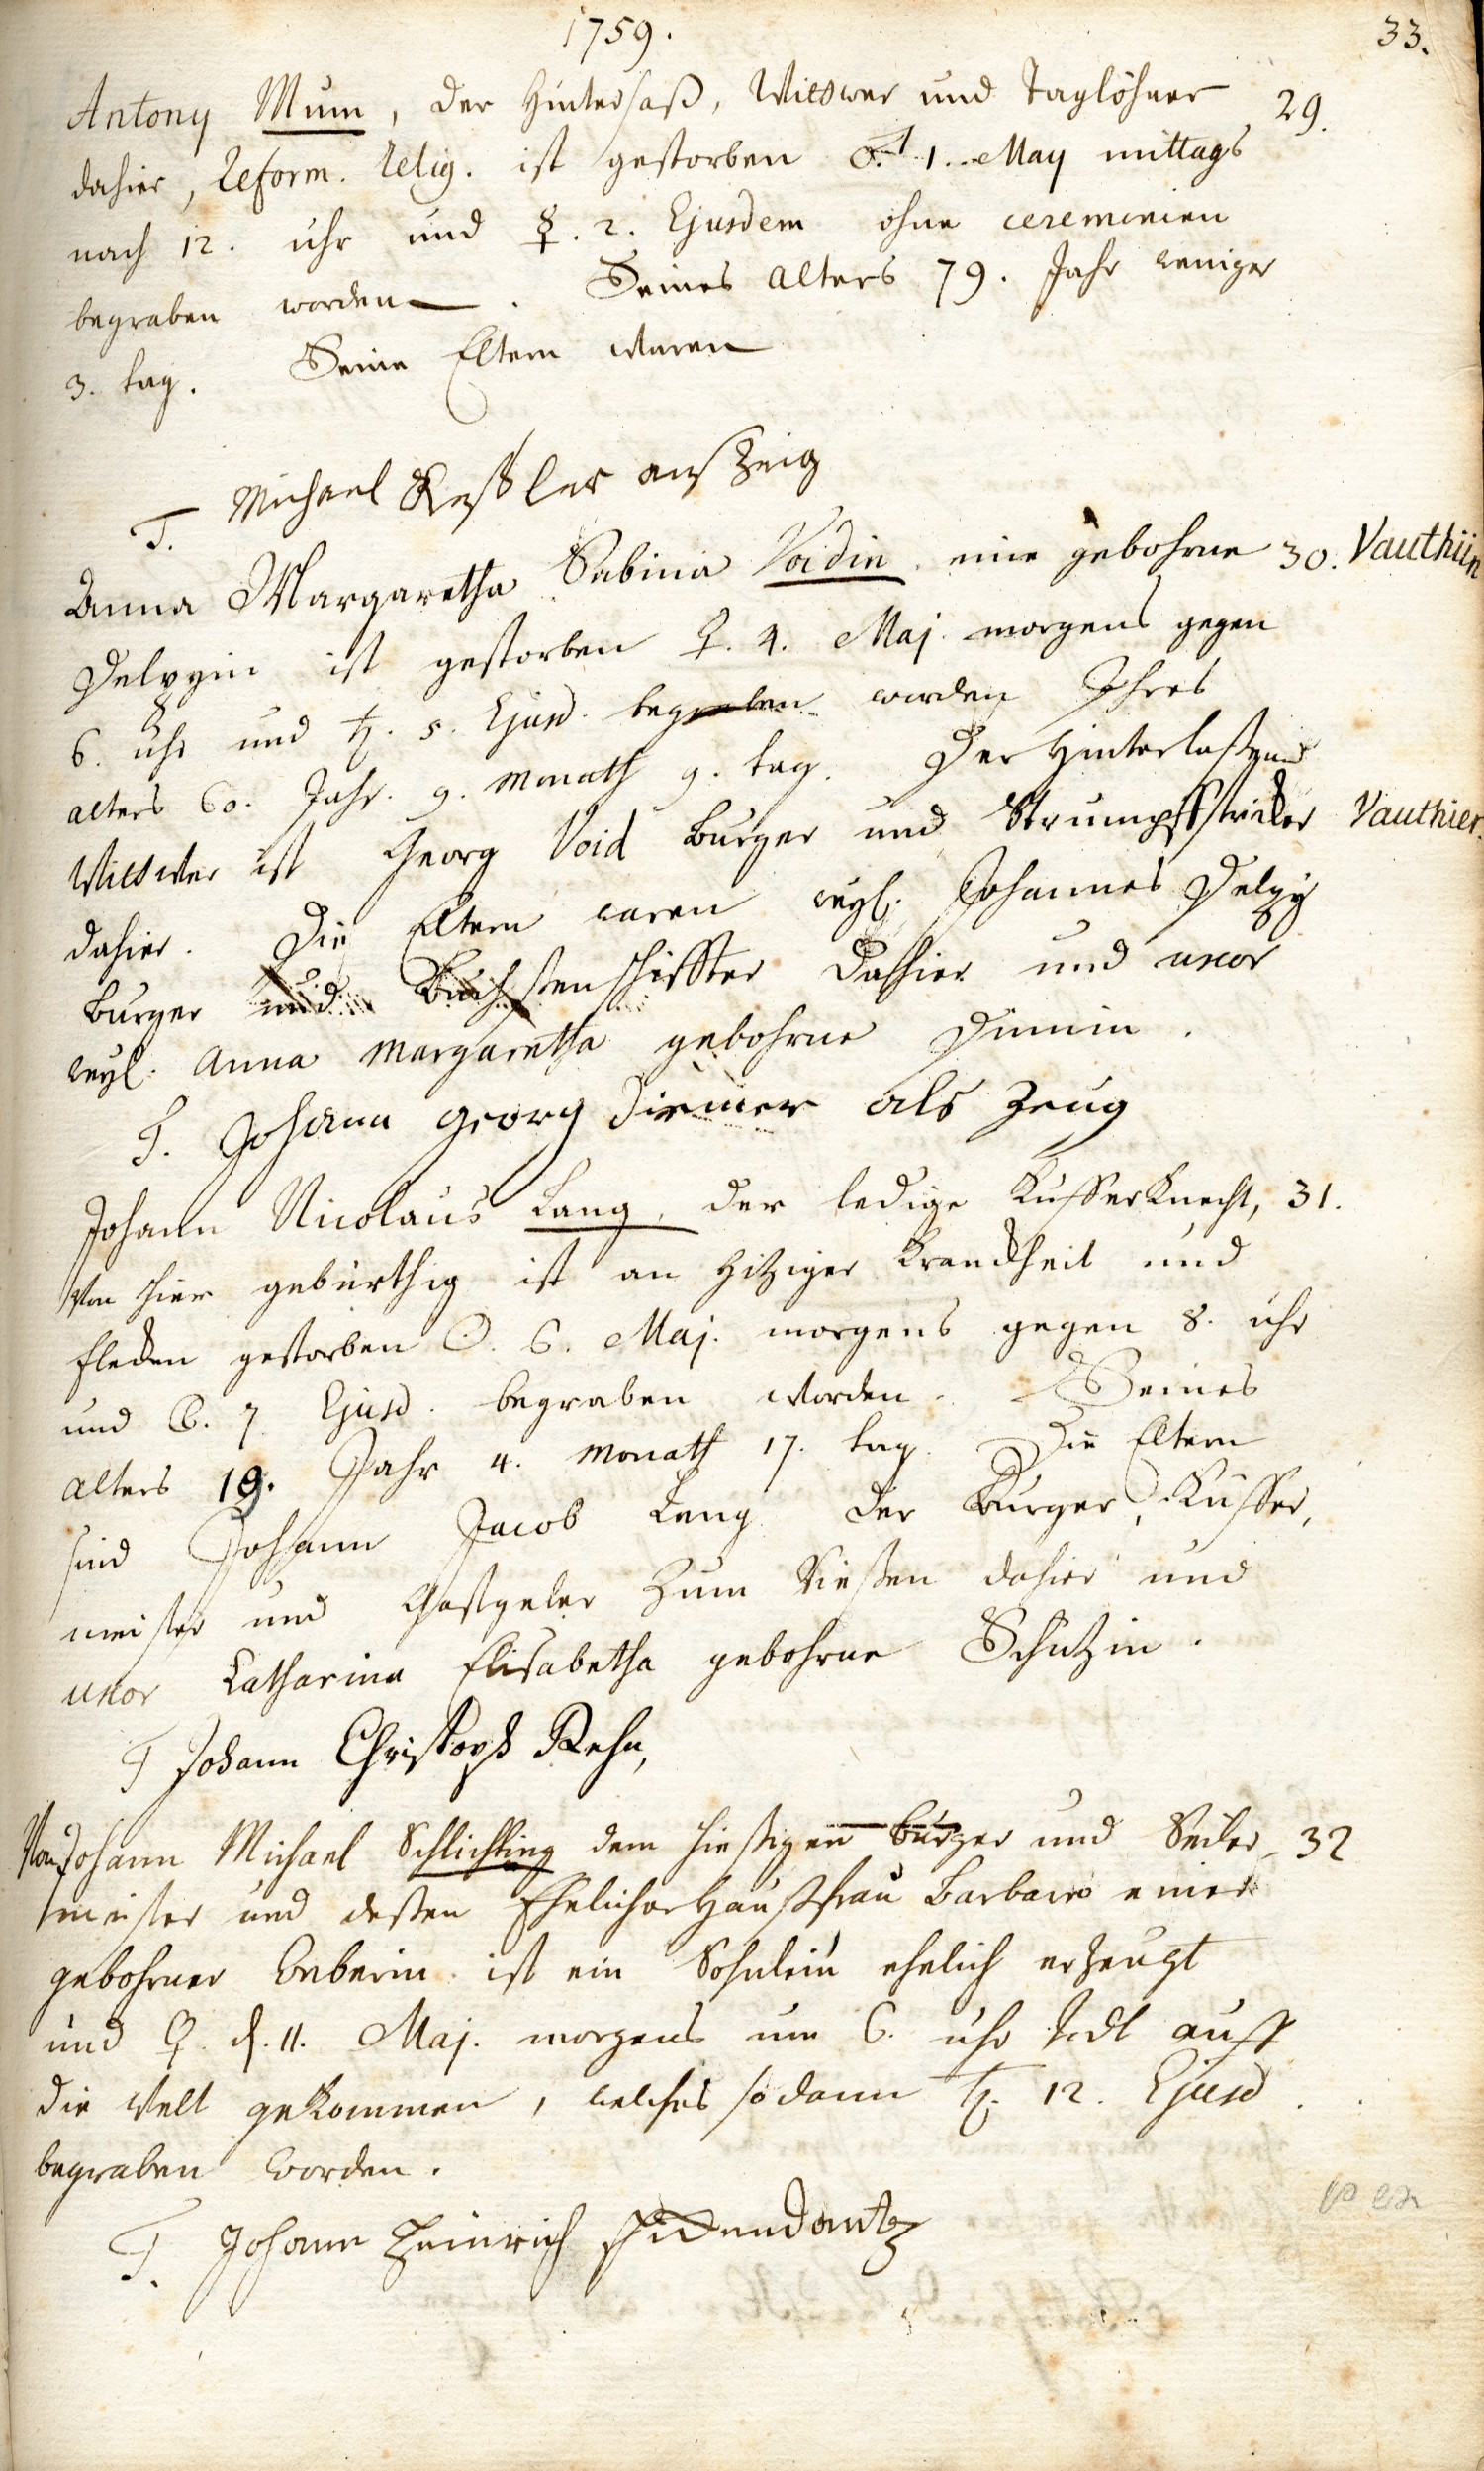 1759.
33.
Antony Mum, der Hintersaß, Wittwer und Taglöhner 29.
dahier, Reform. Relig. ist gestorben ♂. 1. May mittags
nach 12. uhr und ☿. 2. Ejusdem ohne ceremonien
begraben worden. Seines alters 79. Jahr weniger
3. tag. Seine Eltern waren
T. Michael Keßler als Zeig
Anna Margaretha Sabina Voidin eine gebohrne 30. Vauthiin
Delpyin ist gestorben ♀. 4. Maj. morgens gegen
6. uhr und ♄. 5. Ejusd. begraben worden Ihres
alters 60. Jahr. 9. Monath 9. tag. Der Hinterlaßene
Wittwer ist Georg Void Burger und Strumpffstricker Vauthier.
dahier. Die Eltern waren weyl. Johannes Delpy
Burger und Buchsenschiffter dahier und uxor
weyl. Anna Margaretha gebohrne
T. Johann Georg Diemer als Zeug
Johann Nicolaus Lang, der ledige Kufferknecht, 31.
Von hier gebürthig ist an hitziger Kranckheit und
flecken gestorben ☉. 6. Maj. morgens gegen 8. uhr
und ☾. 7 Ejusd. begraben worden. Seines
alters 19. Jahr 4. Monath 17. tag. Die Eltern
sind Johann Jacob Lang der Burger, Küffer,
meister und Gastgeber zum Rießen dahier und
uxor Catharina Elisabetha gebohrne Schützin.
T Johann Christoph Rehn,
Von Johann Michael Schlichting dem hießigen burger und Seiler- 32
meister und deßen Ehelicher Haußfrau Barbara einer
gebohrner Weberin ist ein Sohnlein ehelich erzeugt
und ♀. d. 11. Maj. morgens um 6. uhr todt auff
die Welt gekommen, welches sodann ♄. 12. Ejusd.
begraben worden.
T. Johann Heinrich